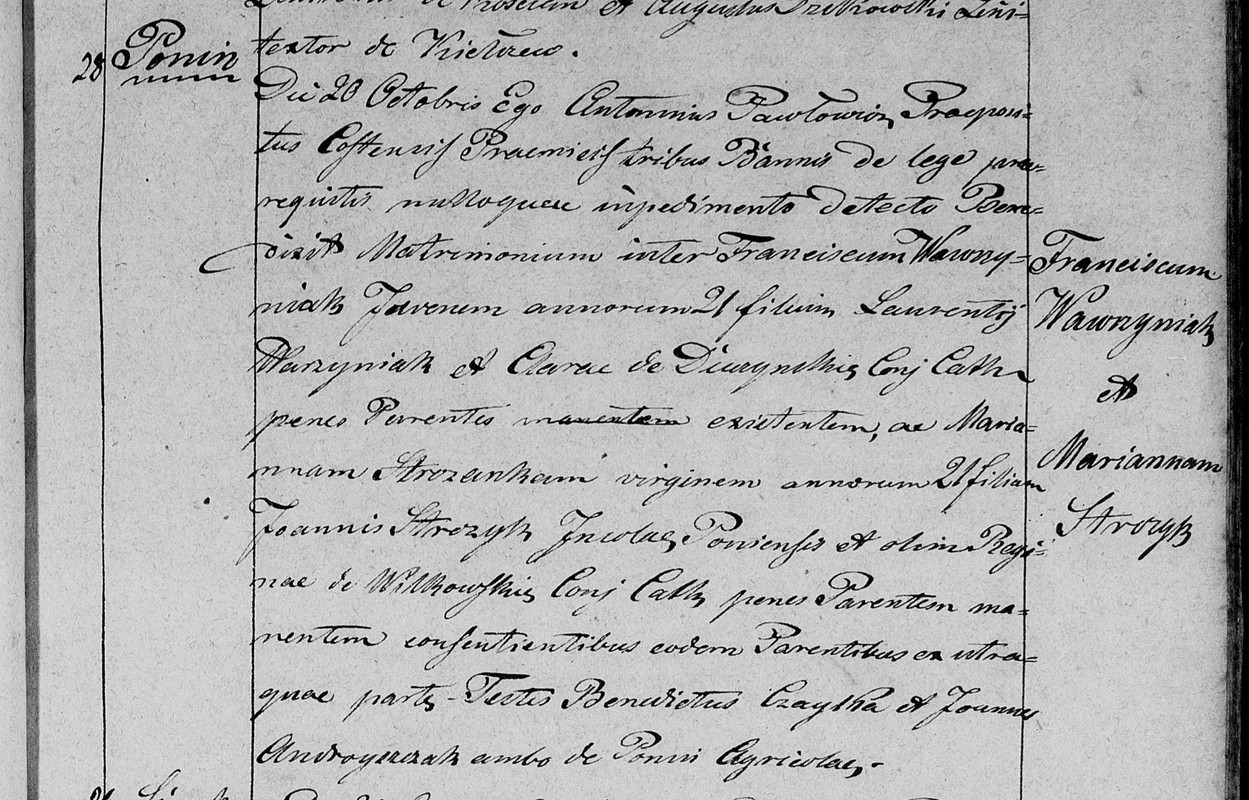 de Koscian et Augustus Dzikowski Lini-
textor de Kiełczew.
28 Ponin
Die 20 Octobris Ego Antonius Pawłowicz Praeposi-
tus Costensis Praemissis tribus Bannis de lege prae-
requistis nulloquae inpedimento detecto Bene-
dixit Matrimonium inter Franciscum Wawrzy-
niak Juvenem annorum 21 filium Laurentij
Warzyniak et Clarae de Conj Cath
penes Parentes manentem existentem, ac Maria-
nnam Strozankam virginem annorum 21 filiam
Joannis Strozyk Incolae Poniensis et olim Regi-
nae de Wilkowskie Conj Cath penes Parentem ma-
nentem consentientibus eodem Parentibus ex utra-
quae parte - Testes Benedictus Czayka et Joannes
ambo de Ponin Agricolae.-
Franciscum
Wawrzyniak
et
Mariannam
Strozyk